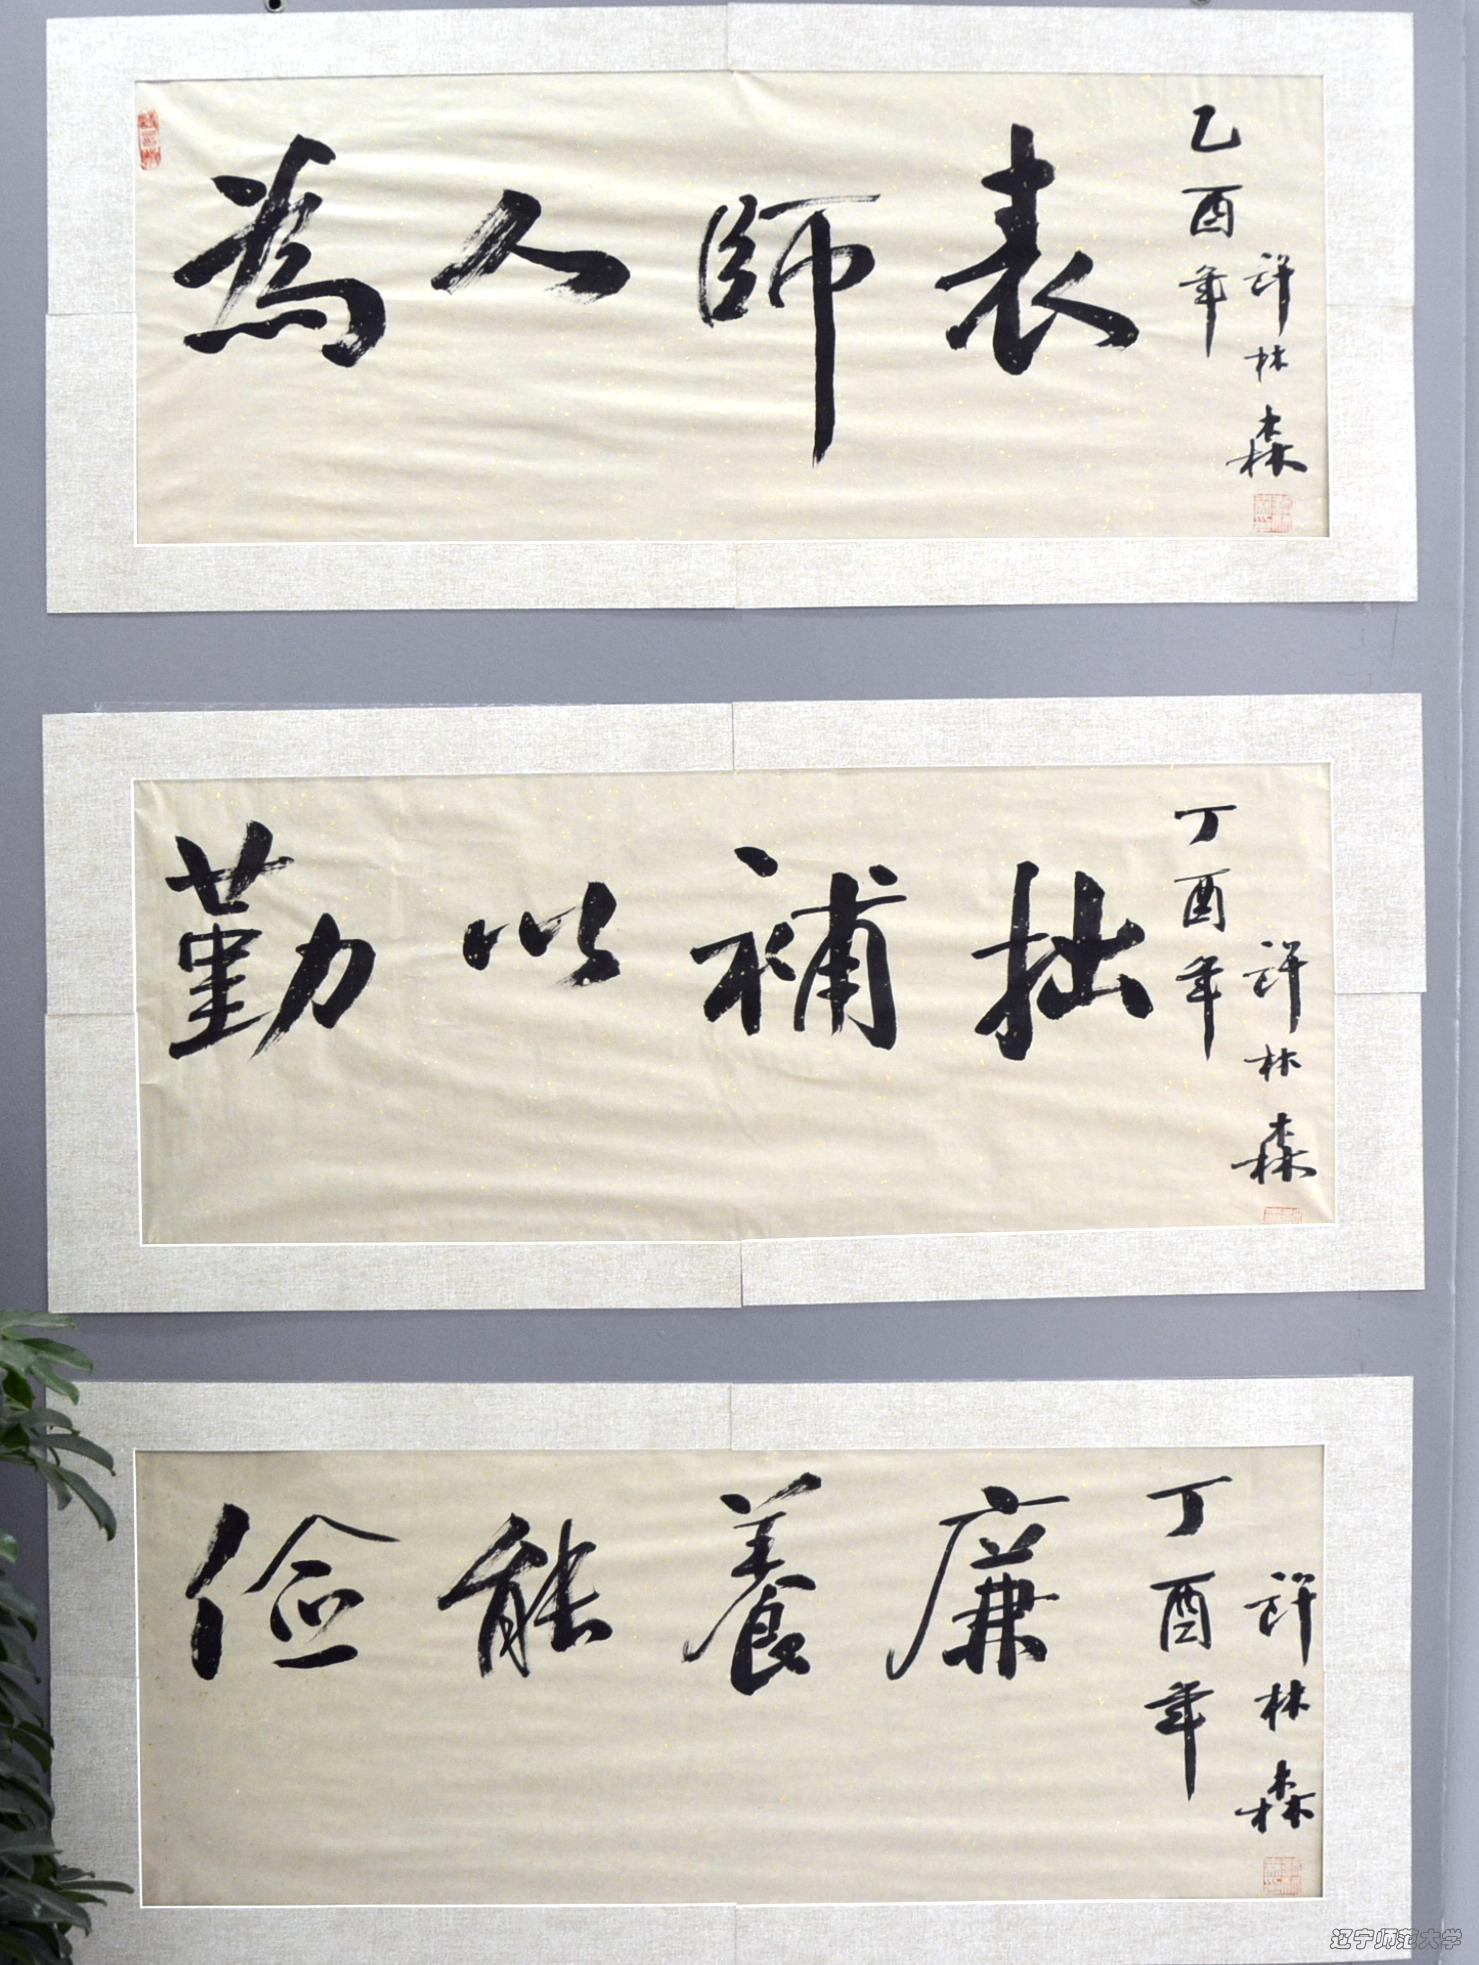 為人師表
乙酉年
許林森
勤以補拙
丁酉年
許林森
儉能養廉
丁酉年
許林森
辽宁师范大学